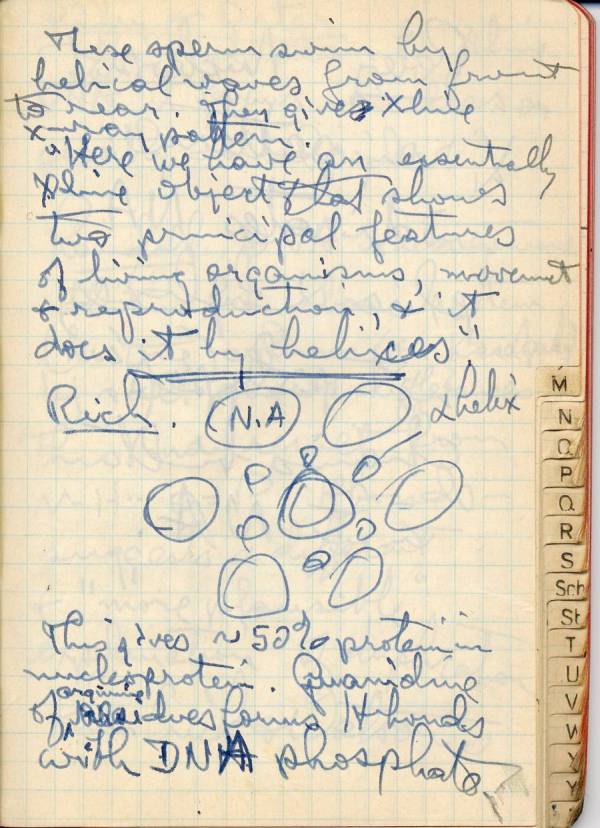 These sperm swim by
helical waves from front
to rear. They give xline
x-ray pattern.
"Here we have an essentially
xline object that shows
two principal features
of living organisms, movement
& reproduction, & it
does it by helixes".
Rich. N.A αhelix
This gives ~ 50% protein in
nucleoprotein. Guanidine
arginine
of residues forms H bonds
with DNA phosphate.
M
N
O
P
Q
R
S
Sch
St
T
U
V
W
X
Y